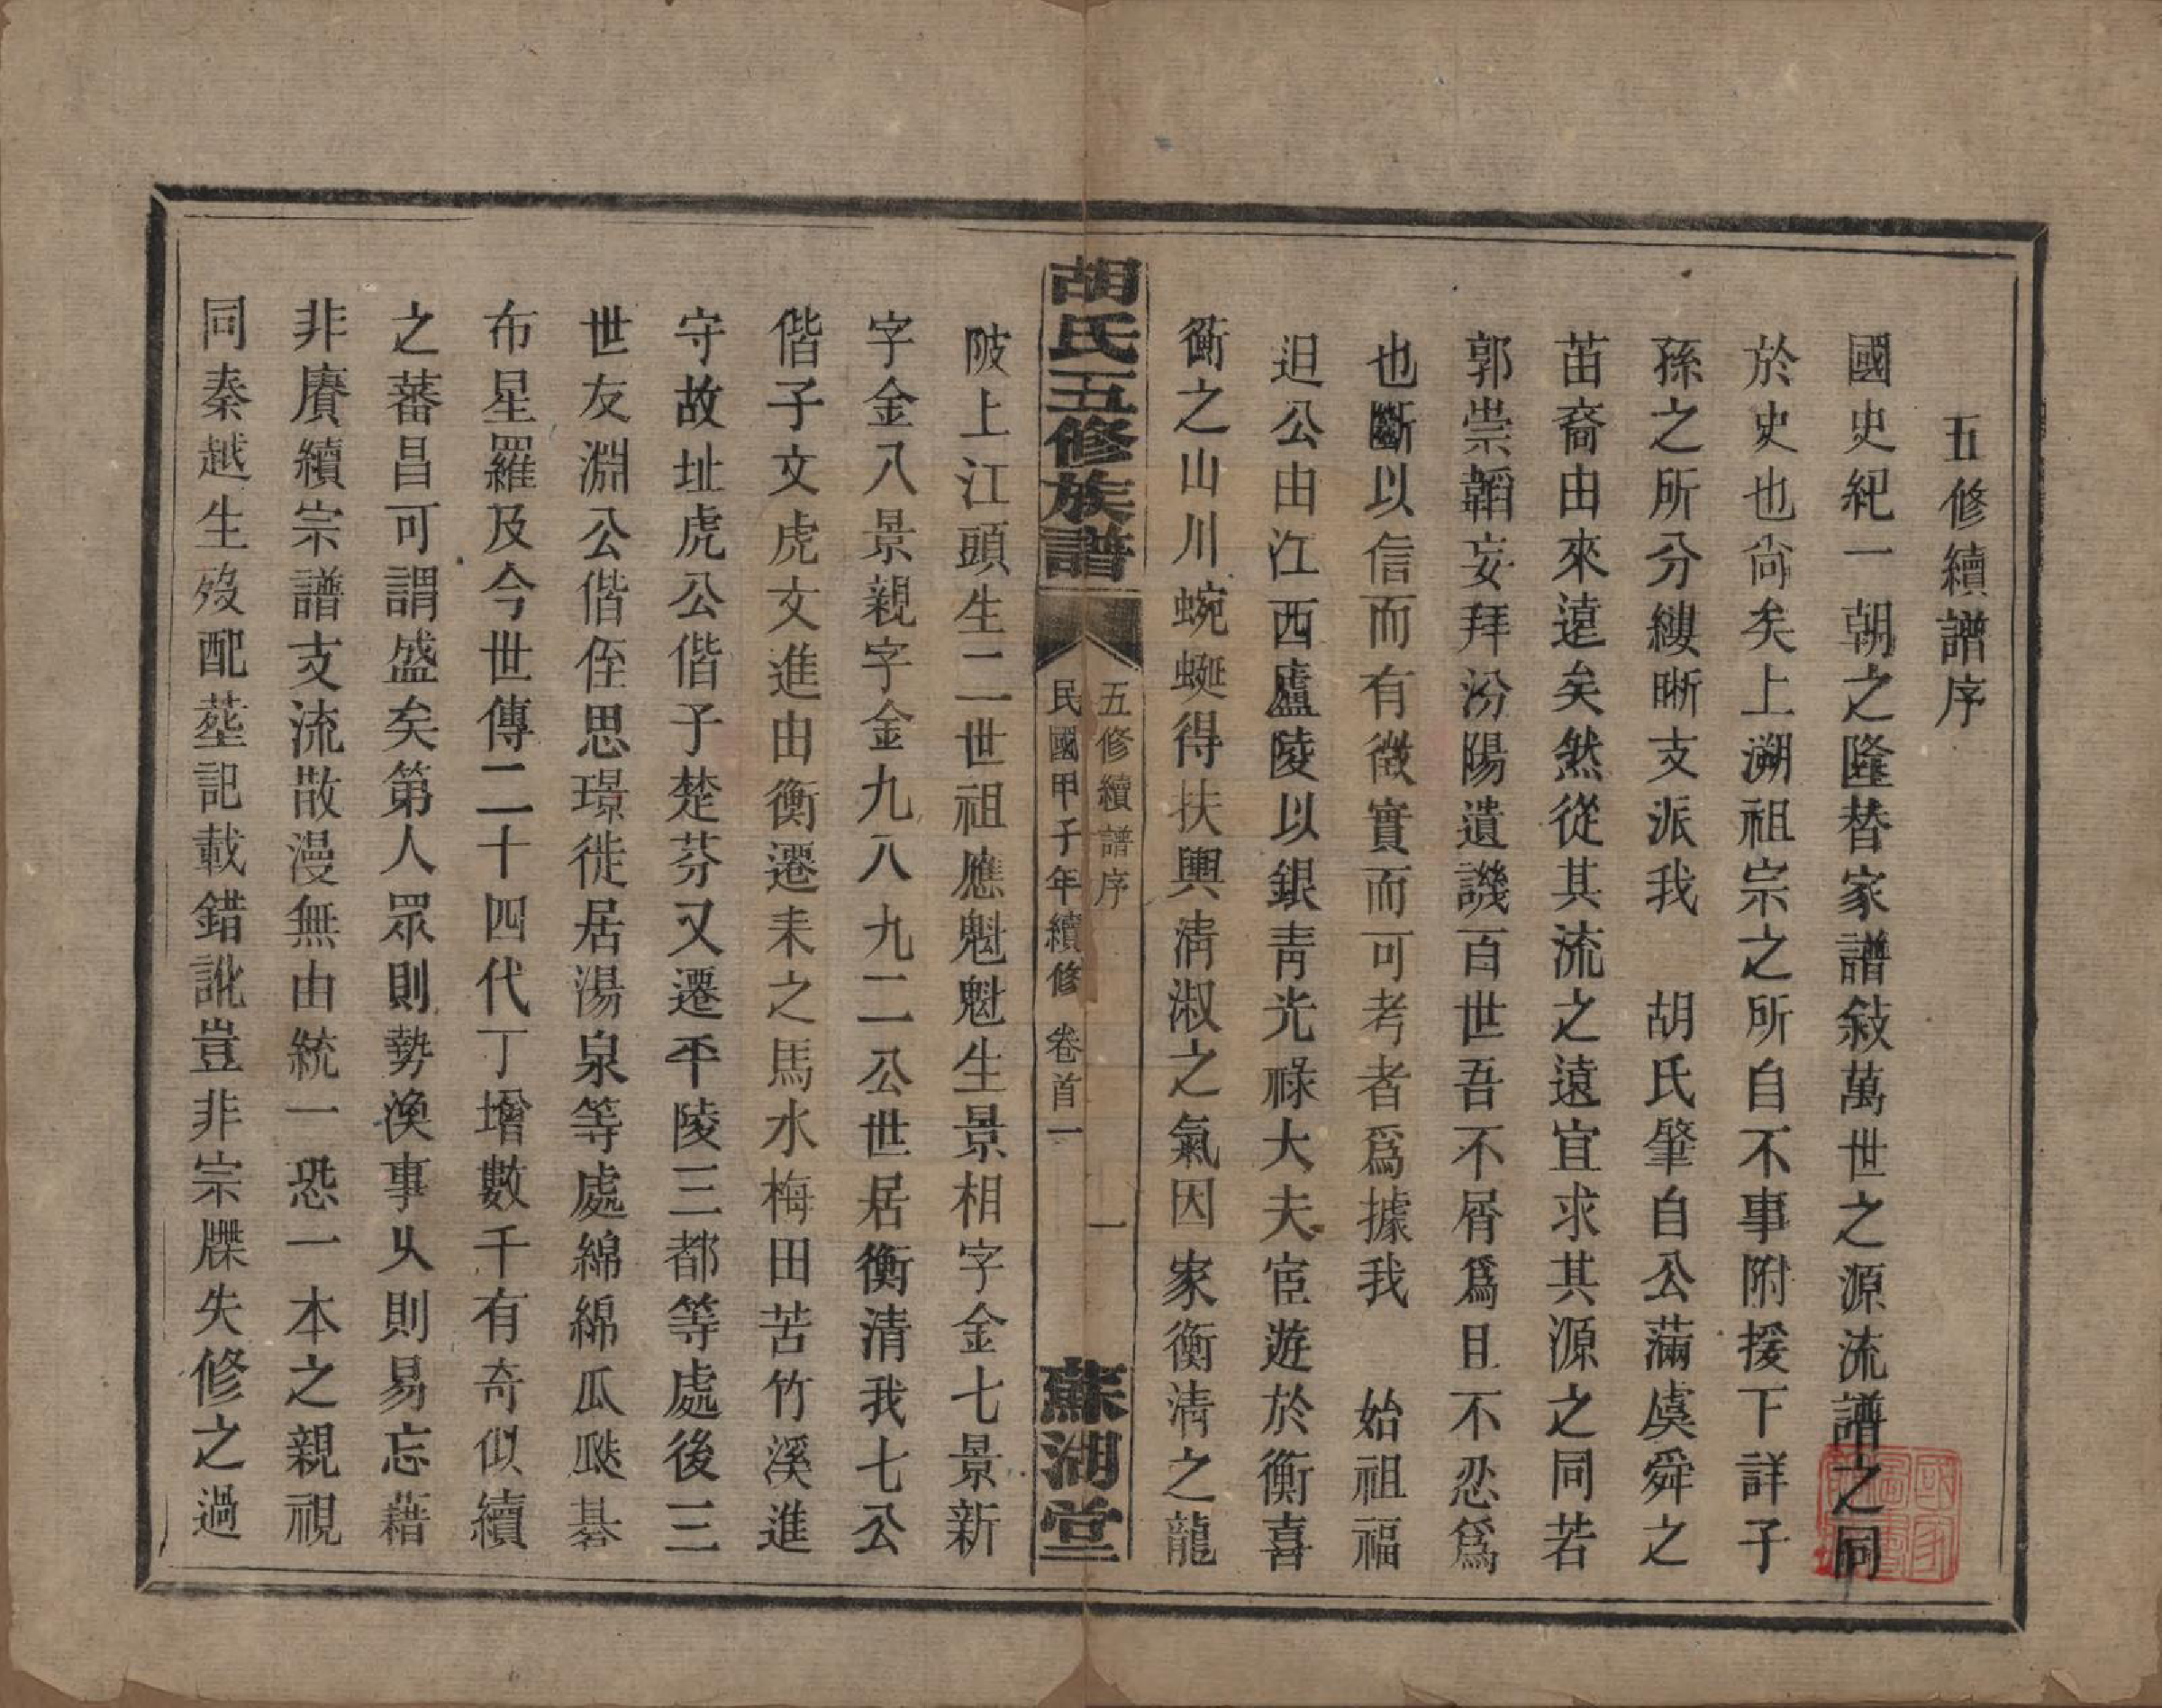 五修續譜序
國史紀一朝之隆替家譜敍萬世之源流譜之同
於史也尙矣上溯祖宗之所自不事附援下詳子
孫之所分縷晰支派我　胡氏肇自公滿虞舜之
苗裔由來遠矣然從其流之遠宜求其源之同若
郭崇韜妄拜汾陽遺譏百世吾不屑爲且不忍爲
也斷以信而有徵實而可考者爲據我　始祖福
𢓜公由江西廬陵以銀靑光祿大夫宦遊於衡喜
衡之山川蜿蜒得扶輿淸淑之氣因家衡淸之龍
胡氏五修族譜
五修續譜序
民國甲子年續修　卷首一
一
蘇湖堂
陂上江頭生二世祖應魁魁生景相字金七景新
字金八景親字金九八九二公世居衡清我七公
偕子文虎文進由衡遷耒之馬水梅田苦竹溪進
守故址虎公偕子楚芬又遷平陵三都等處後三
世友淵公偕侄思璟徙居湯泉等處綿綿瓜瓞碁
布星羅及今世傳二十四代丁增數千有奇似續
之蕃昌可謂盛矣第人眾則勢渙事久則易忘藉
非賡續宗譜支流散漫無由統一恐一本之親視
同秦越生歿配塟記載錯訛豈非宗牒失修之過